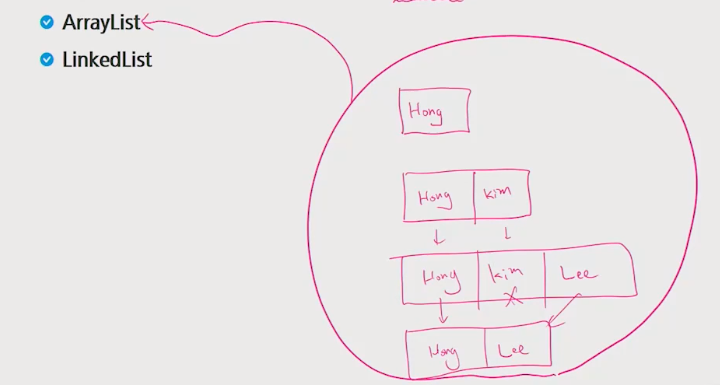 ArrayList
LinkedList
Hong
Hong kim
Hong kim Lee
Hong Lee